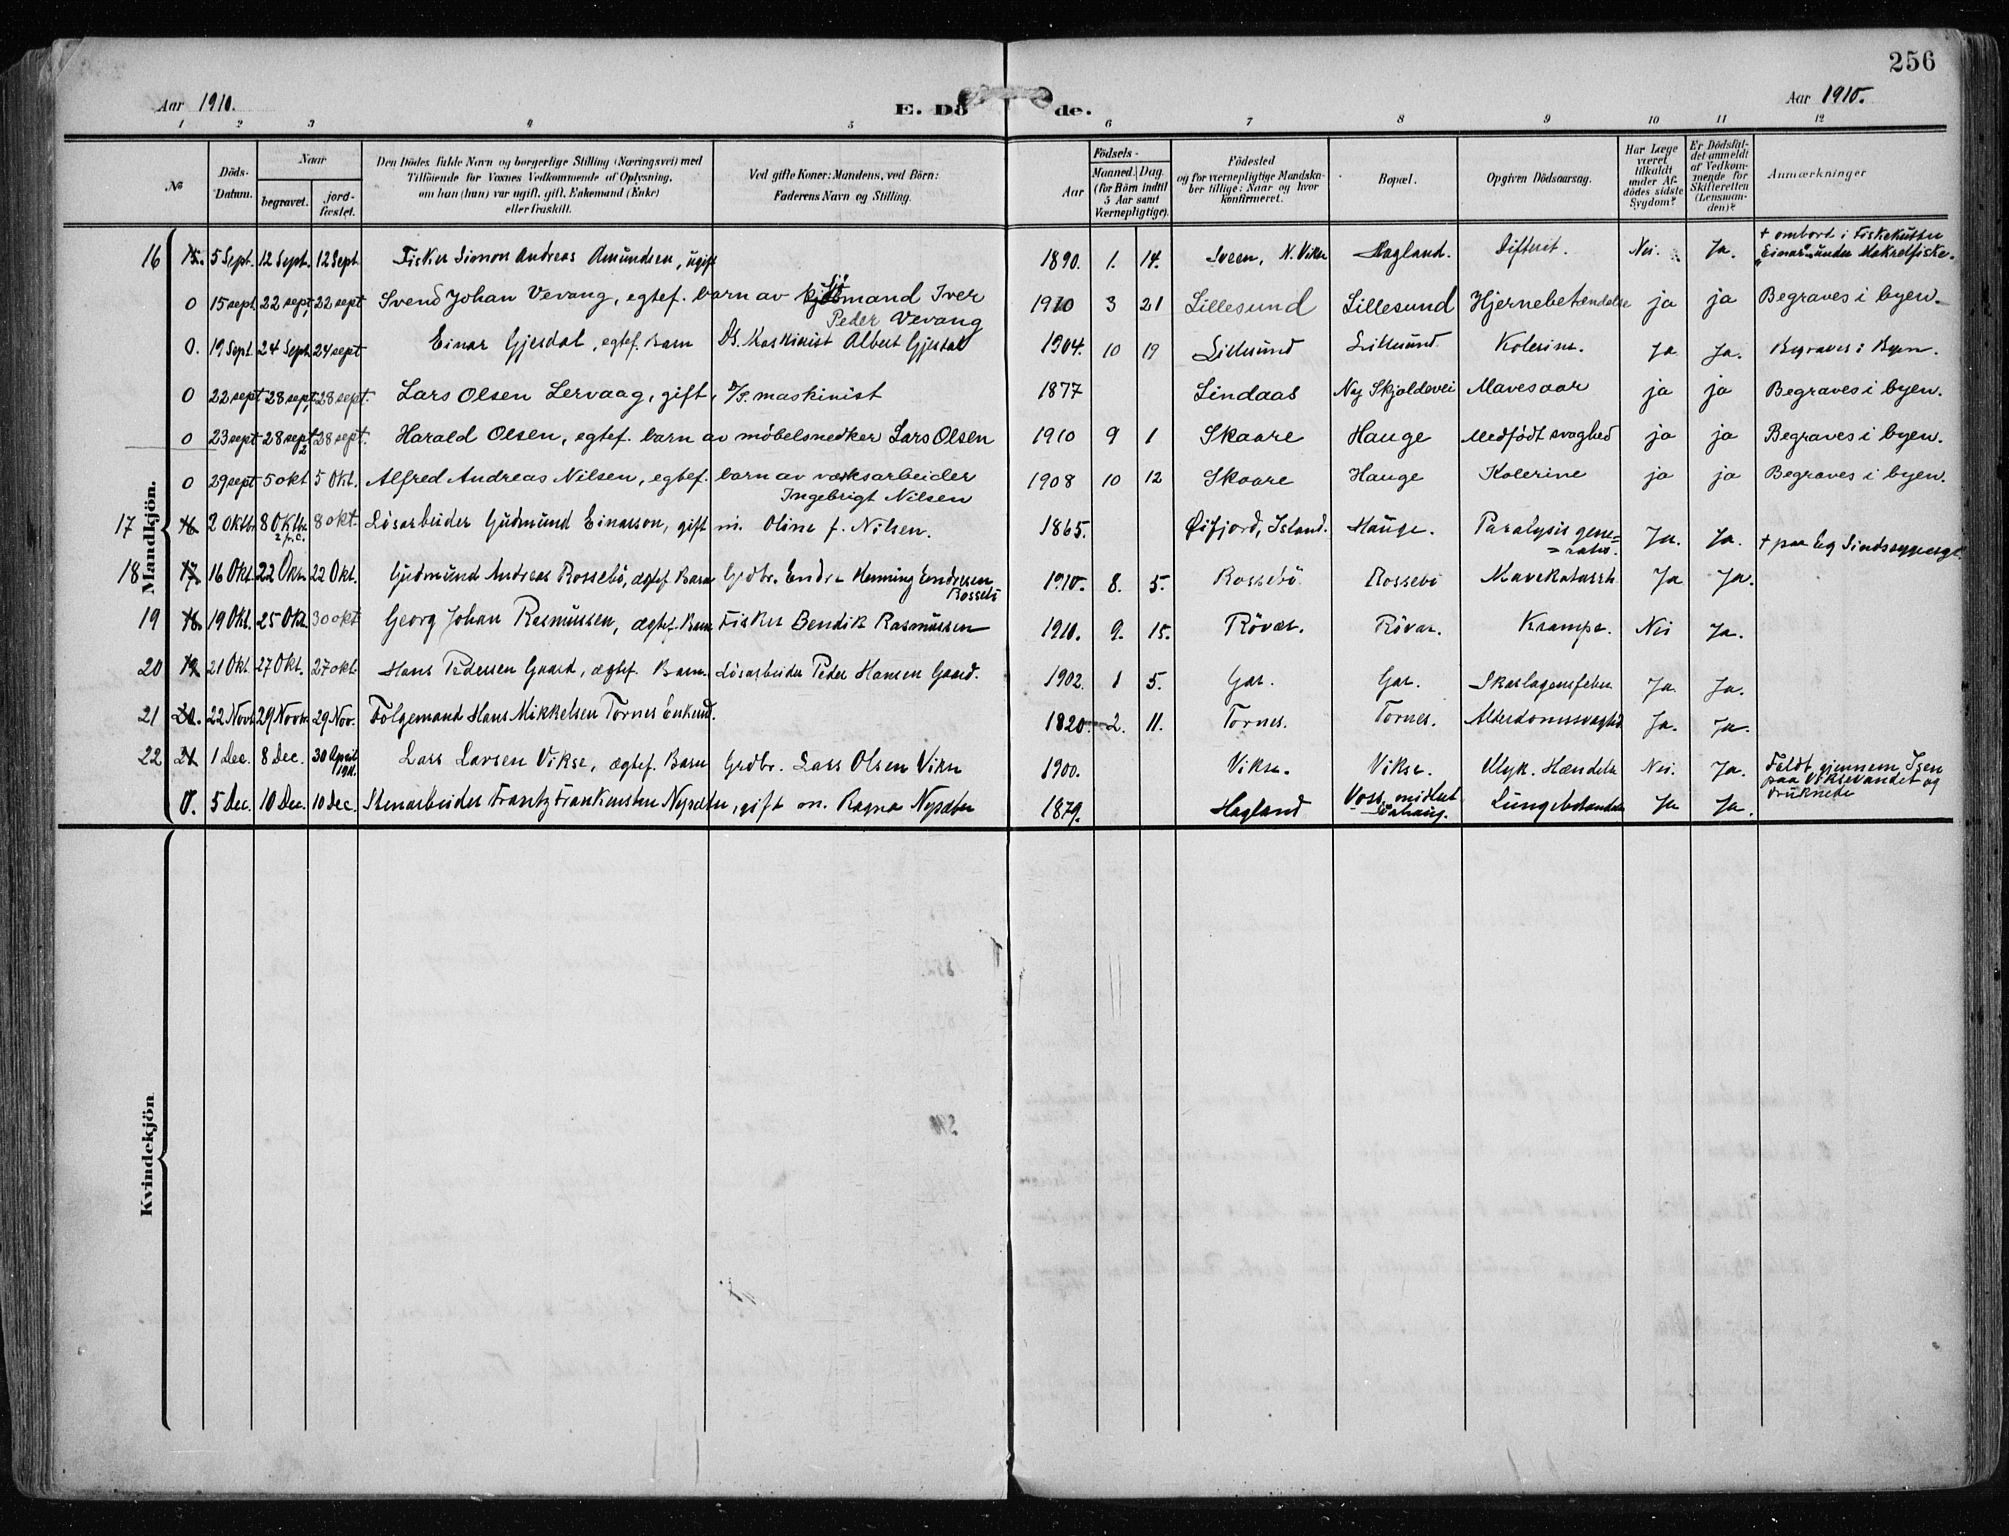 256
Aar 1910.
E. Dö de.
Aar 1910.
1 2 3 4 5 6 7 8 9 10 11 12
No
Döds-Datum.
Naar
begravet.
jord-fæstet.
Den Dödes fulde Navn og borgerlige Stilling (Næringsvei) med
Tilföiende for Voxnes Vedkommende af Oplysning,
om han (hun) var ugift, gift, Enkemand (Enke)
eller fraskilt.
Ved gifte Koner: Mandens, ved Börn:
Faderens Navn og Stilling.
Födsels-
Aar
Maaned. Dag.
(for Börn indtil
5 Aar samt
Værnepligtige).
Födested
og for værnepligtige Mandska-
ber tillige: Naar og hvor
konfirmeret.
Bopæl.
Opgiven Dödsaarsag.
Har Læge
været
tilkaldt
under Af-
dödes sidste
Sygdom?
Er Dödsfal-
det anmeldt
af Vedkom-
mende for
Skifteretten
(Lensman-
den)?
Anmærkninger
Mandkjön.
16 15. 5 Sept. 12 Sept. 12 Sept. Fisker Simon Andreas Amundsen, ugift 1890. 1. 14. Sveen, N. Vikse Hagland. Difterit. Nei. Ja. + ombord i Fiskekutter
"Einar" under Makrelfiske.
0 15 sept 22 sept, 22 sept Svend Johan Vevang, egtef. barn av mand Iver 1910 3 21 Lillesund Lillesund Hjernebetændelse ja ja Begraves i byen.
Peder Vevang
0. 19 Sept. 24 Sept. 24 sept Einar Gjesdal, egtef. Barn D/S. Maskinist Albert Gjesdal 1904. 10 19 Lillesund Lillesund Kolerine. Ja Ja. Begraves i Byen.
0 22 sept. 28 sept, 28 sept. Lars Olsen Lervaag, gift, D/S. maskinist 1877 Lindaas Ny Skjoldevei Mavesaar ja ja Begraves i byen.
0 23 sept 28 sept 28 sept. Harald Olsen, egtef. barn av møbelsnedker Lars Olsen 1910 9 1 Skaare Hauge Medfødt svaghed ja ja Begraves i byen.
0 29 sept 5 okt 5 Okt. Alfred Andreas Nilsen, egtef. barn av værksarbeider 1908 10 12 Skaare Hauge Kolerine ja ja Begraves i byen.
Ingebrigt Nilsen
17 16 2 Oktbr. 8 Oktbr. 8 okt. Løsarbeider Gudmund Einarson, gift m. Oline f. Nilsen. 1865. Øifjord, Island. Hauge. Paralysis gene=
=ralis. Ja. Ja. + paa Eg Sindssygeasyl.
18 17 16 Okt. 22 Okt. 22 Okt. Gudmund Andreas Rossebø, ægtef. Barn Grdbr. Endre Henning Endresen
Rossebø 1910. 8. 5. Rossebø Rossebø Mavekatarrh Ja Ja.
19 18. 19 Okt. 25 Okt. 30 okt Georg Johan Rasmussen, ægtef. Barn Fisker Bendik Rasmussen 1910. 9. 15. Røvær. Røvær. Krampe. Nei Ja.
20 19 21 Okt. 27 Okt. 27 okt. Hans Pedersen Gaard, ægtef. Barn. Løsarbeider Peder Hansen Gaard. 1902. 1 5. Gar. Gar. Skarlagensfeber Ja. Ja.
21 20. 22 Novb. 29 Novbr. 29 Nov. Følgemand Hans Mikkelsen Tornes Enkemd. 1820 2. 11. Tornes. Tornes. Alderdomssvaghed Ja. Ja.
22 21 1 Dec. 8 Dec. 30 April
1911. Lars Larsen Vikse, ægtef. Barn Grdbr. Lars Olsen Vikse 1900. Vikse. Vikse. Ulyk. Hændelse Nei. Ja. Faldt gjennem Isen
paa Viksevandet og
druknede
0. 5 Dec. 10 Dec. 10 Dec. Stenarbeider Frantz Frankensten Nysæter, gift m. Ragna Nysæter 1879. Hagland Lungebetændelse Ja Ja.
Kvindekjön